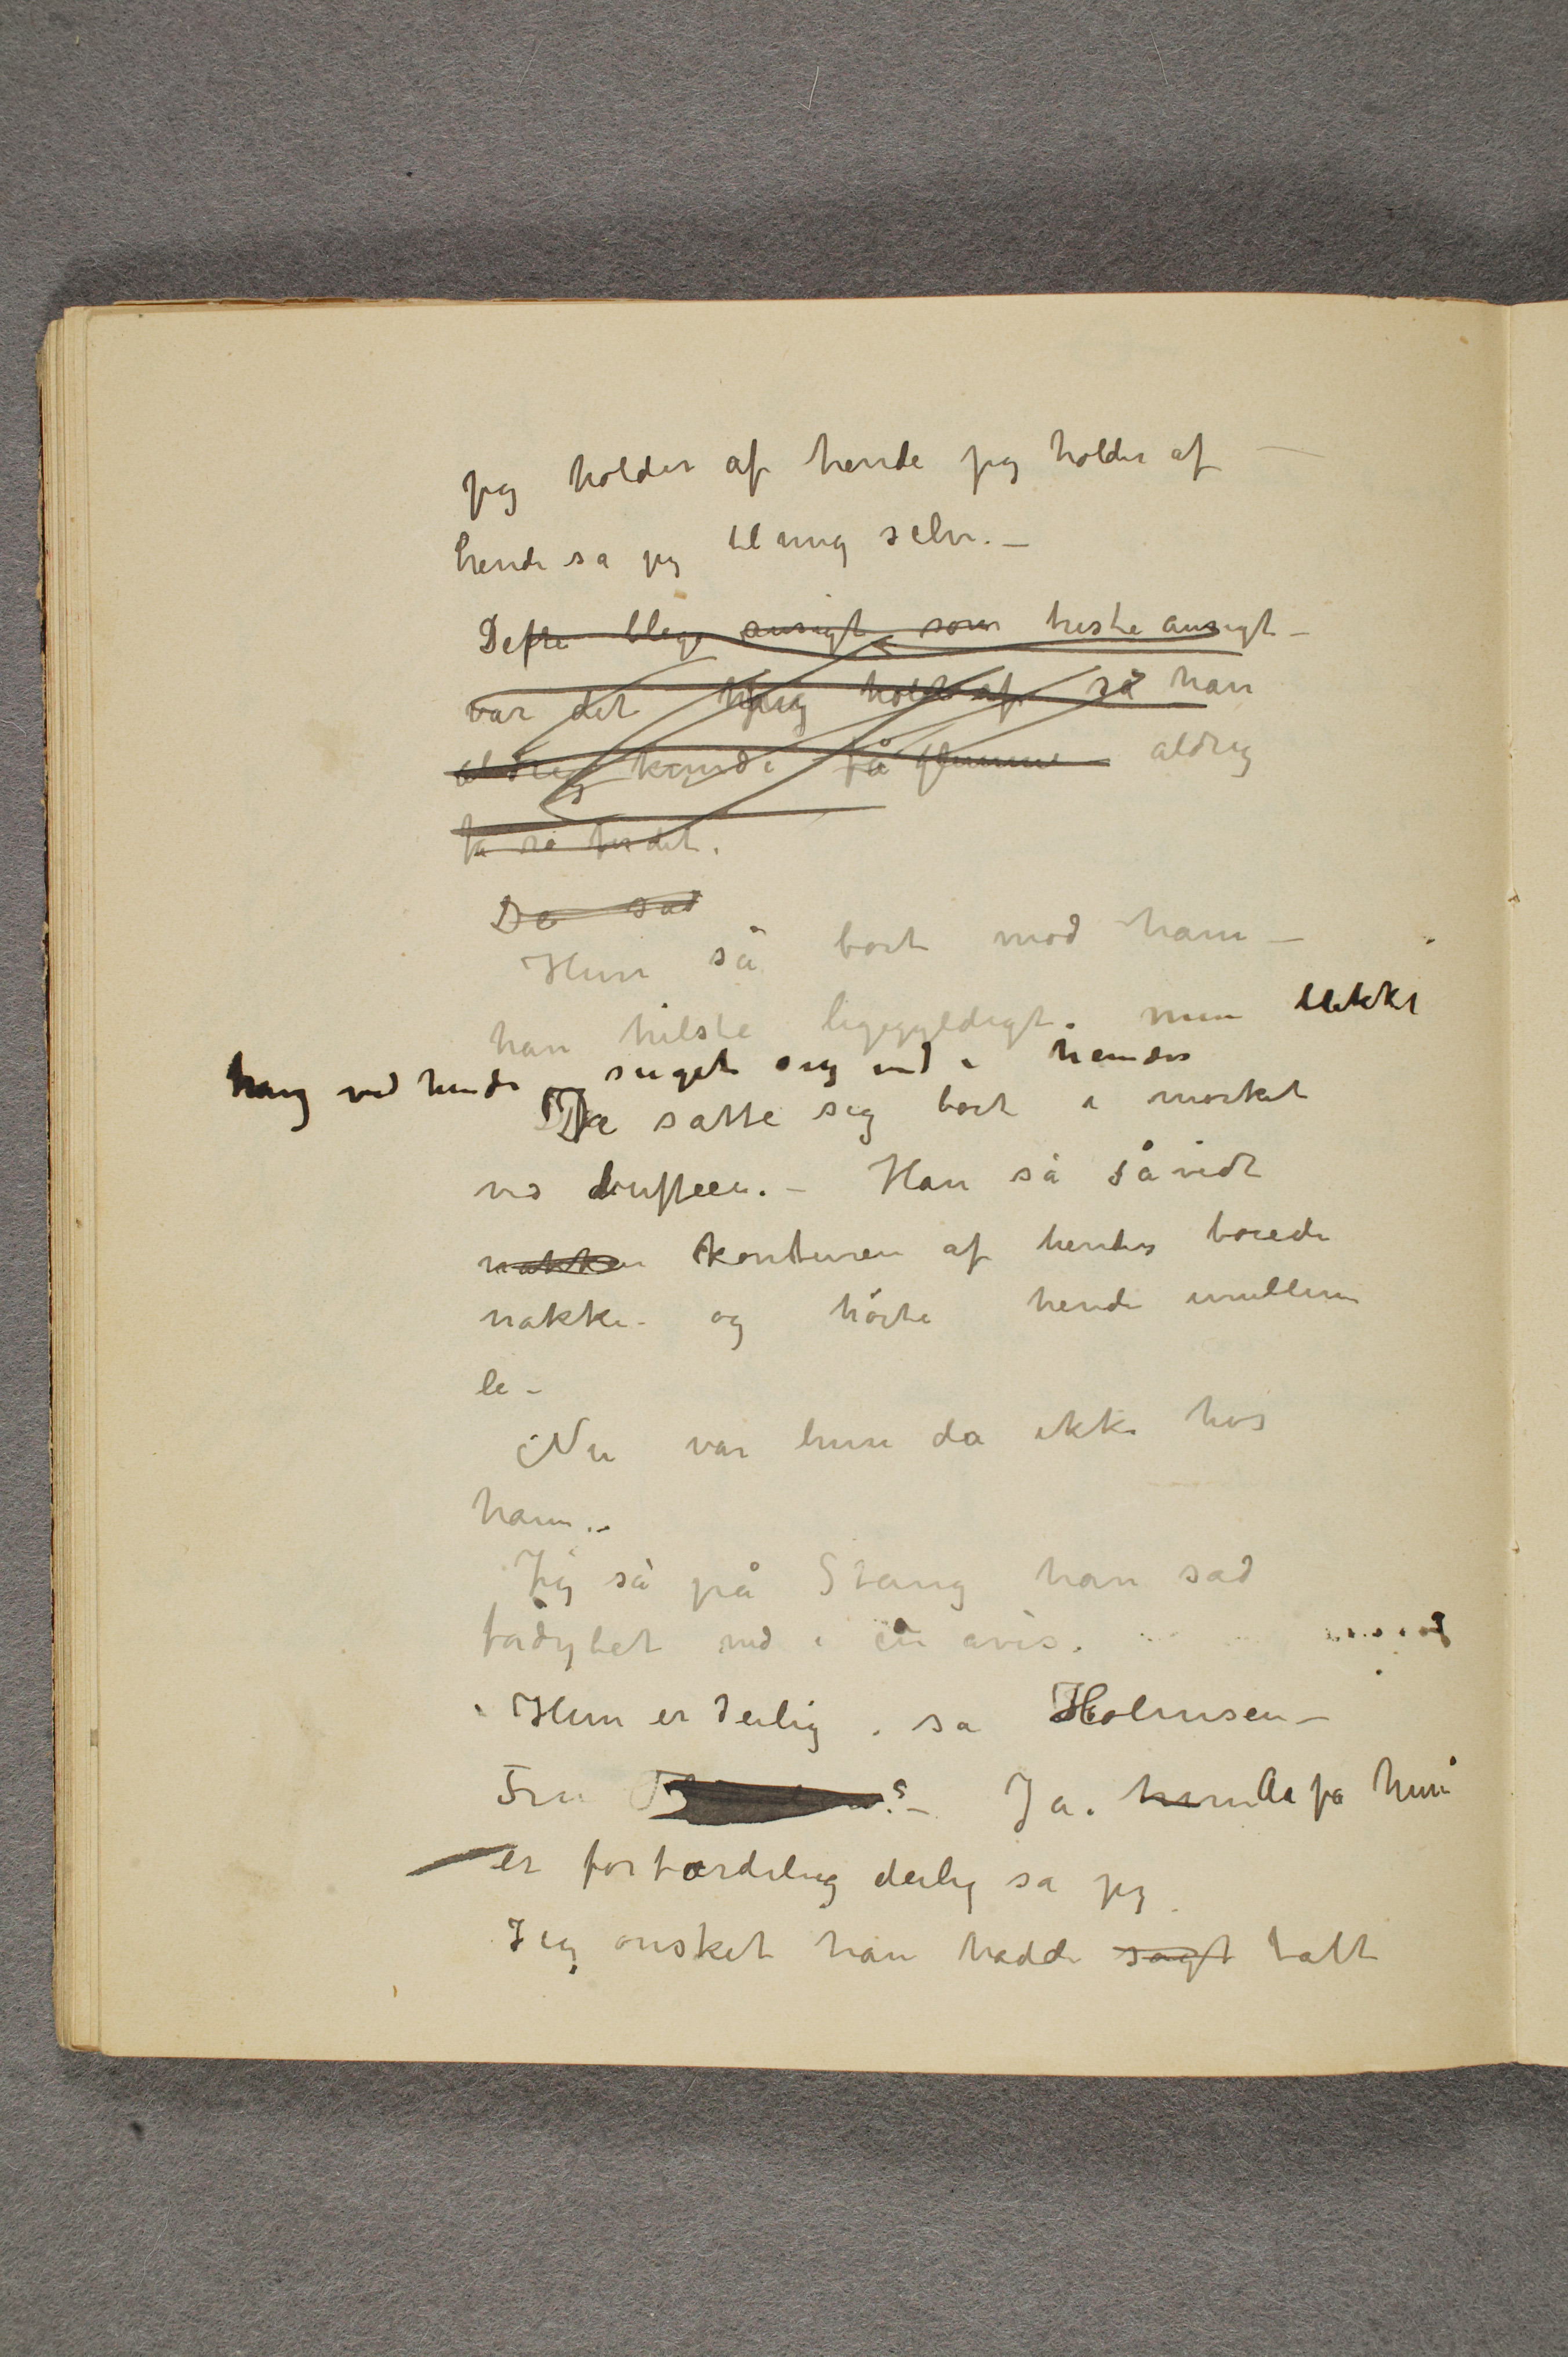 jeg holder af hende jeg holder af –
hende sa jeg til mig selv. –
Dette blege ansigt som triste ansigt –
var det jeg holdt af så han
aldrig kunde få aldrig
få se det.
De sad
Hun så bort mod ham –
han hilste ligegyldigt. men blikket
hang ved hende og suget sig ind i hendes
De satte sig bort i mørket
ved buffeen. – Han så såvidt
nakken konturen af hendes boiede
nakke – og hörte hende imellem
le –
Nu var hun da ikke hos
ham. –
Jeg så på Stang han sad
fordybet ned i en avis.
Hun er deilig. sa Holmsen –
Fru – Ja. Aa ja hun
er forfærdelig deilig sa jeg
Jeg ønsket han hadde sagt talt